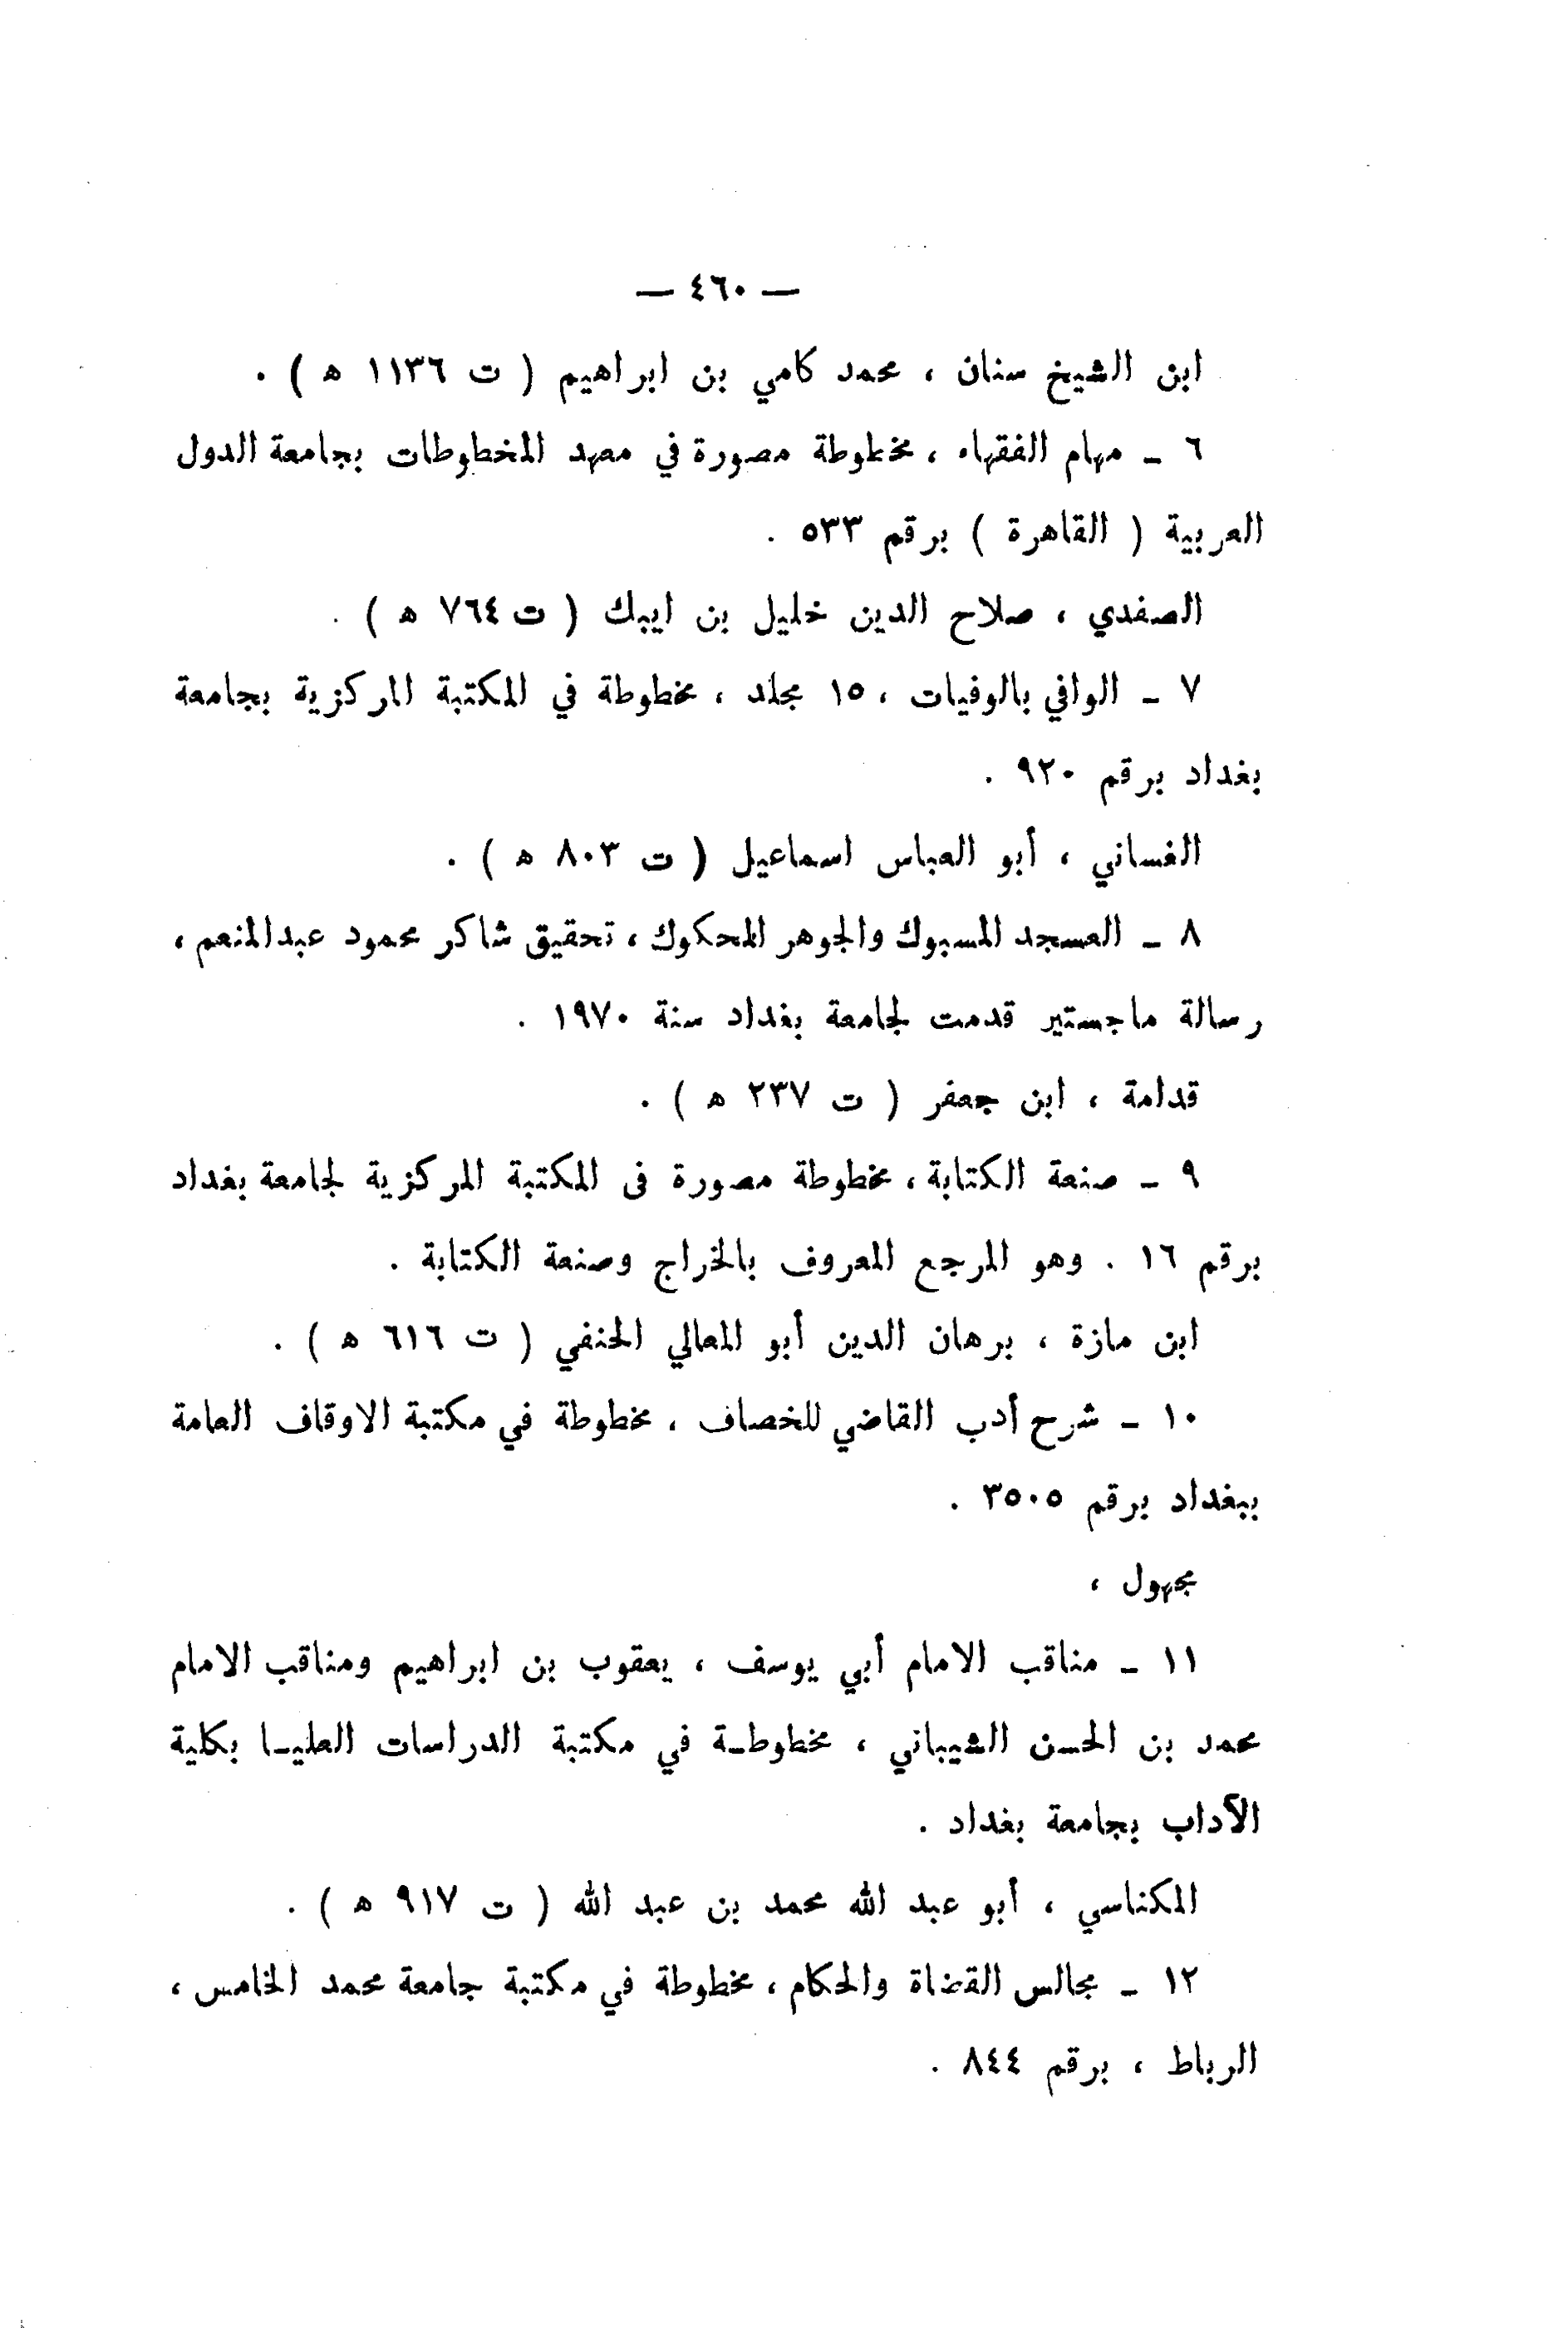 — ٤٦٠ —
ابن الشيخ سنان ، محمد كامي بن ابراهيم ( ت ١١٣٦ ه ) .
٦ ـ مهام الفقهاء ، مخطوطة مصورة في معهد المخطوطات بجامعة الدول
العربية ( القاهرة ) برقم ٥٣٣ .
الصفدي ، صلاح الدين خليل بن ايبك ( ت ٧٦٤ ه ) .
٧ ـ الوافي بالوفيات ، ١٥ مجلد ، مخطوطة في المكتبة المركزية بجامعة
بغداد برقم ٩٢٠ .
الغساني ، أبو العباس اسماعيل ( ت ٨٠٣ ه ) .
٨ ـ العسجد المسبوك والجوهر المحكوك ، تحقيق شاكر محمود عبدالمنعم ،
رسالة ماجستير قدمت لجامعة بغداد سنة ١٩٧٠ .
قدامة ، ابن جعفر ( ت ٢٣٧ ه ) .
٩ ـ صنعة الكتابة ، مخطوطة مصورة فى المكتبة المركزية لجامعة بغداد
برقم ١٦ . وهو المرجع المعروف بالخراج وصنعة الكتابة .
ابن مازة ، برهان الدين أبو المعالي الحنفي ( ت ٦١٦ ه ) .
١٠ ـ شرح أدب القاضي للخصاف ، مخطوطة في مكتبة الاوقاف العامة
ببغداد برقم ٣٥٠٥ .
مجهول ،
١١ ـ مناقب الامام أبي يوسف ، يعقوب بن ابراهيم ومناقب الامام
محمد بن الحسن الشيباني ، مخطوطـة في مكتبة الدراسات العليـا بكلية
الآداب بجامعة بغداد .
المكناسي ، أبو عبد الله محمد بن عبد الله ( ت ٩١٧ ه ) .
١٢ ـ مجالس القضاة والحكام ، مخطوطة في مكتبة جامعة محمد الخامس ،
الرباط ، برقم ٨٤٤ .